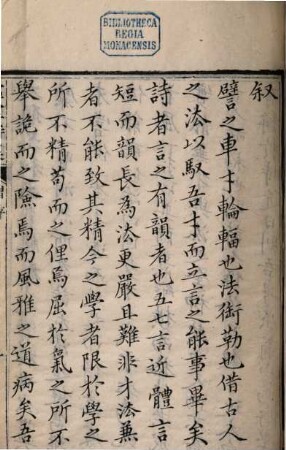 BIBLIOTHECA
REGIA
MONACENSIS
叙
譬之車才輪輻也法銜勒也借古人
之法以馭吾才而立言之能事畢矣
詩者言之有韻者也五七言近體言
短而韻長為法更嚴且難非才法兼
者不能致其精今之學者限於學之
所不精苟而之俚焉屈於氣之所不
舉詭而之險焉而風雅之道病矣吾